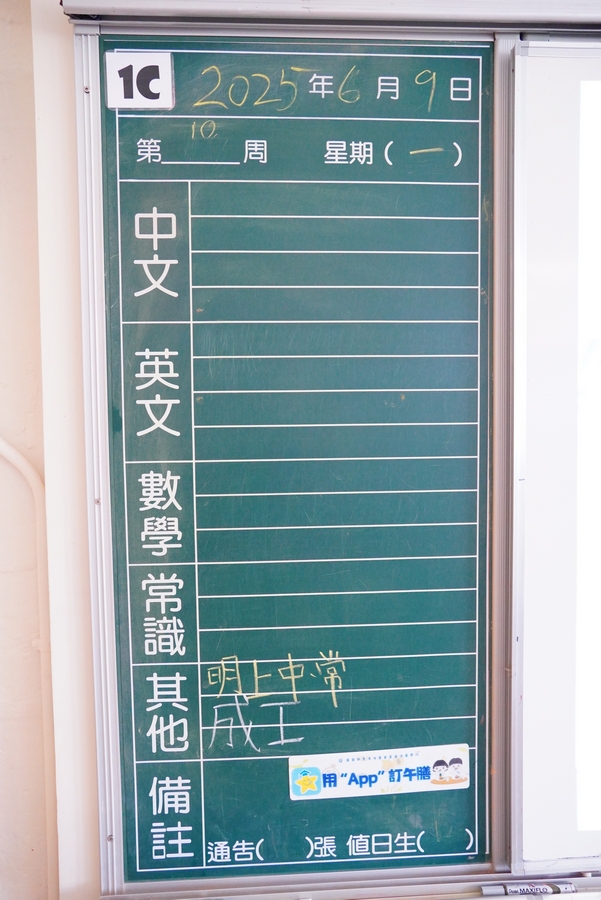 1C 2025年6月9日
第10周 星期(一)
中文
英文
數學
常識
其他 明上中.常
成工
用“App”訂午膳
備註 通告( )張 值日生( )